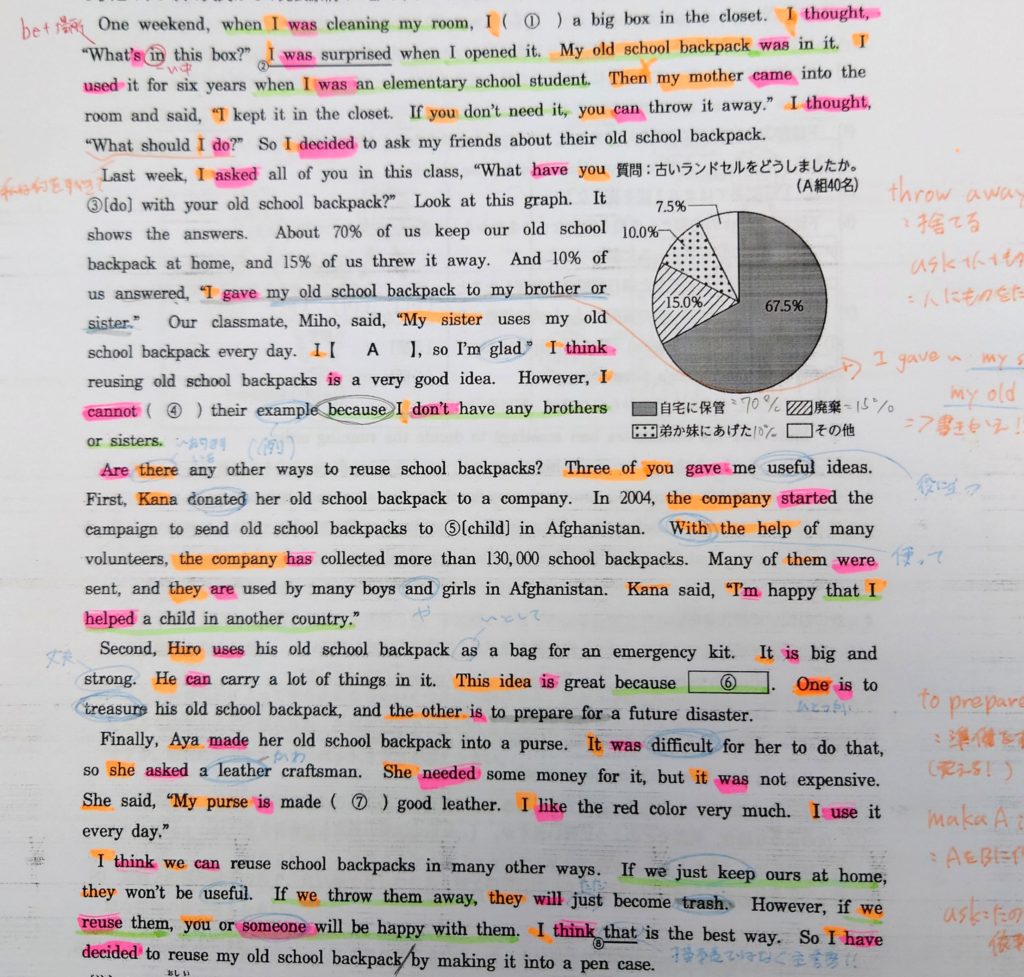 One weekend, when I was cleaning my room, I ( ① ) a big box in the closet. I thought,
"What's in this box?" ②I was surprised when I opened it. My old school backpack was in it. I
used it for six years when I was an elementary school student. Then my mother came into the
room and said, "I kept it in the closet. If you don't need it, you can throw it away." I thought,
"What should I do?" So I decided to ask my friends about their old school backpack.
Last week, I asked all of you in this class, "What have you
③[do] with your old school backpack?" Look at this graph. It
shows the answers. About 70% of us keep our old school
backpack at home, and 15% of us threw it away. And 10% of
us answered, "I gave my old school backpack to my brother or
sister." Our classmate, Miho, said, "My sister uses my old
school backpack every day. I【 A 】, so I'm glad." I think
reusing old school backpacks is a very good idea. However, I
cannot ( ④ ) their example because I don't have any brothers
or sisters.
質問：古いランドセルをどうしましたか。
(A組40名)
7.5%
10.0%
15.0%
67.5%
自宅に保管 =70% 廃棄=15%
弟か妹にあげた10% その他
Are there any other ways to reuse school backpacks? Three of you gave me useful ideas.
First, Kana donated her old school backpack to a company. In 2004, the company started the
campaign to send old school backpacks to ⑤[child] in Afghanistan. With the help of many
volunteers, the company has collected more than 130,000 school backpacks. Many of them were
sent, and they are used by many boys and girls in Afghanistan. Kana said, "I'm happy that I
helped a child in another country."
Second, Hiro uses his old school backpack as a bag for an emergency kit. It is big and
strong. He can carry a lot of things in it. This idea is great because ⑥. One is to
treasure his old school backpack, and the other is to prepare for a future disaster.
Finally, Aya made her old school backpack into a purse. It was difficult for her to do that,
so she asked a leather craftsman. She needed some money for it, but it was not expensive.
She said, "My purse is made ( ⑦ ) good leather. I like the red color very much. I use it
every day."
I think we can reuse school backpacks in many other ways. If we just keep ours at home,
they won't be useful. If we throw them away, they will just become trash. However, if we
reuse them, you or someone will be happy with them. I think ⑧that is the best way. So I have
decided to reuse my old school backpack/by making it into a pen case.
be+場所
throw away
：捨てる
：人にものをた
I gave u my s
my old
=>書きかえ!!
(例)
役に立つ
使って
や
いとして
丈夫
かわ
ただ
to prepare
：準備を
maka A
：AをBに